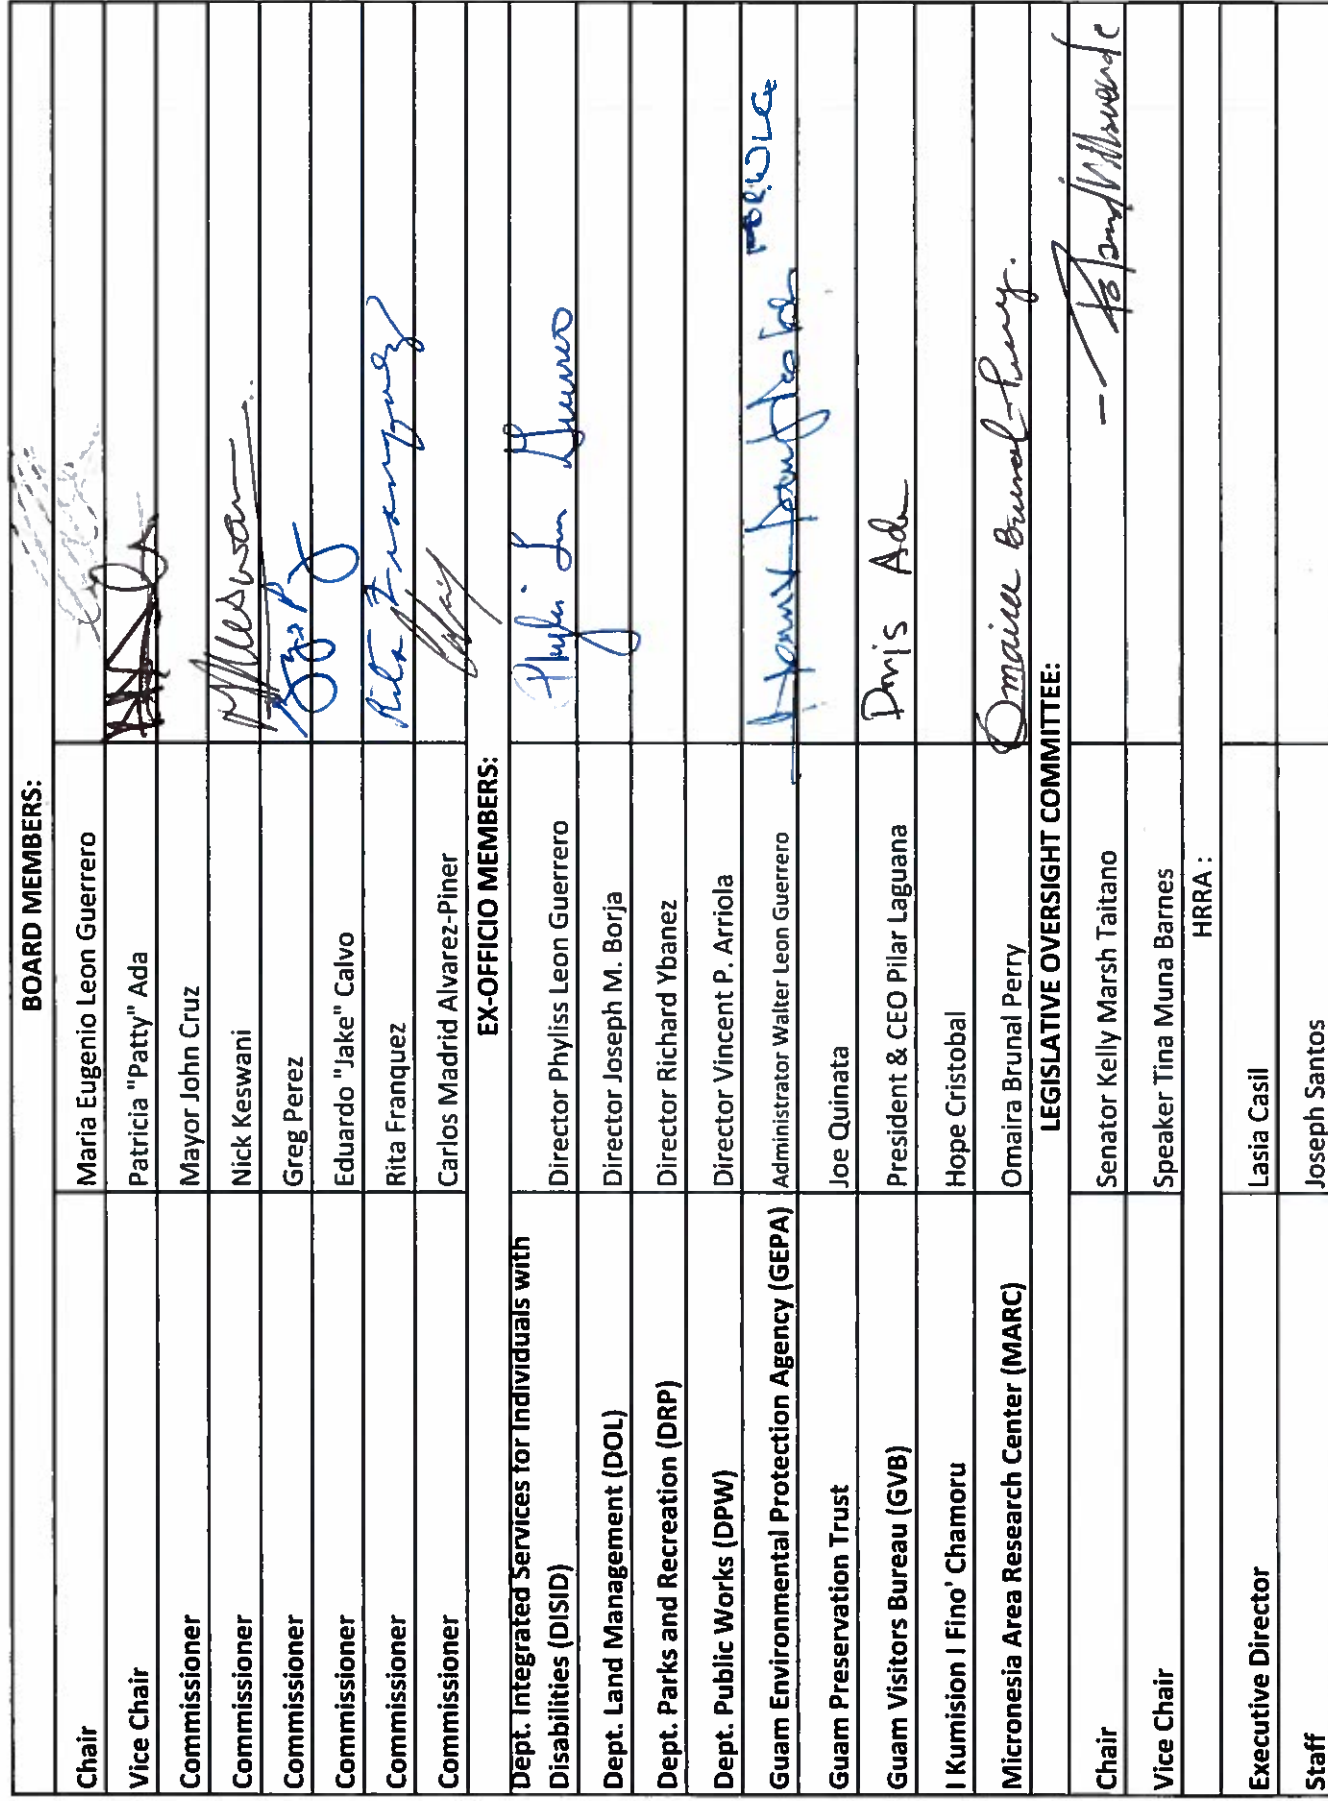 BOARD MEMBERS:
Chair Maria Eugenio Leon Guerrero
Vice Chair Patricia "Patty" Ada
Commissioner Mayor John Cruz
Commissioner Nick Keswani
Commissioner Greg Perez
Commissioner Eduardo "Jake" Calvo
Commissioner Rita Franquez Rita Franquez
Commissioner Carlos Madrid Alvarez-Piner
EX-OFFICIO MEMBERS:
Dept. Integrated Services for Individuals with
Disabilities (DISID) Director Phyliss Leon Guerrero
Dept. Land Management (DOL) Director Joseph M. Borja
Dept. Parks and Recreation (DRP) Director Richard Ybanez
Dept. Public Works (DPW) Director Vincent P. Arriola
Guam Environmental Protection Agency (GEPA) Administrator Walter Leon Guerrero FOR WLG
Guam Preservation Trust Joe Quinata
Guam Visitors Bureau (GVB) President & CEO Pilar Laguana Doris Ada
I Kumision I Fino' Chamoru Hope Cristobal
Micronesia Area Research Center (MARC) Omaira Brunal Perry Omaira Brunal-Perry.
LEGISLATIVE OVERSIGHT COMMITTEE:
Chair Senator Kelly Marsh Taitano
Vice Chair Speaker Tina Muna Barnes
HRRA :
Executive Director Lasia Casil
Staff Joseph Santos